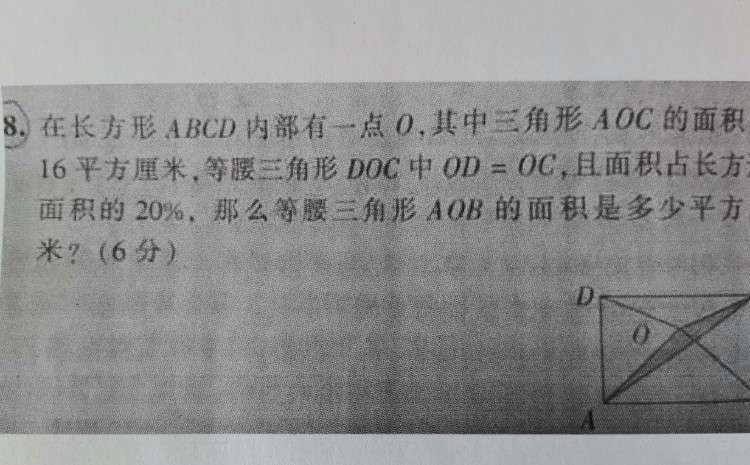 8. 在长方形ABCD内部有一点O,其中三角形AOC的面积
16平方厘米,等腰三角形DOC中OD=OC,且面积占长方
面积的20%，那么等腰三角形AOB的面积是多少平方
米?(6分)
D
O
A